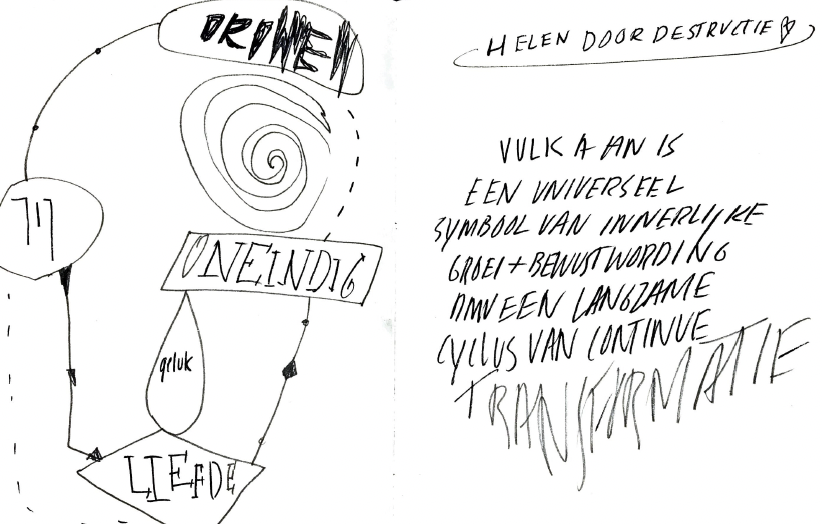 DROMEN
JIJ
ONEINDIG
geluk
LIEFDE
HELEN DOOR DESTRUCTIE
VULKAAN IS
EEN UNIVERSEEL
SYMBOOL VAN INNERLIJKE
GROEI + BEWUSTWORDING
DMV EEN LANGZAME
CYCLUS VAN CONTINUE
TRANSFORMATIE